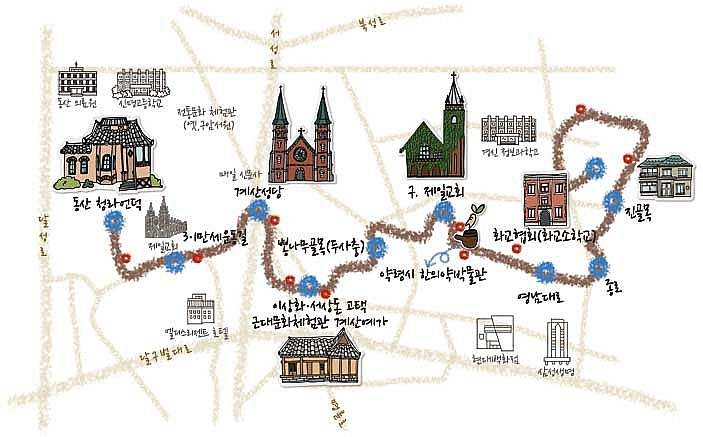 북성로
서성로
동산 의료원
신명고등학교
전통문화 체험관
(옛, 구암서원)
경신 정보과학고
매일 신문사
계산성당
구. 제일교회
동산 청라언덕
진골목
달성로
제일교회
3·1만세운동길
뽕나무골목(두사충)
화교협회(화교소학교)
약령시 한의약박물관
이상화·서상돈 고택
근대문화체험관 계산예가
영남대로
종로
엘디스리젠트 호텔
달구벌대로
현대백화점
삼성생명